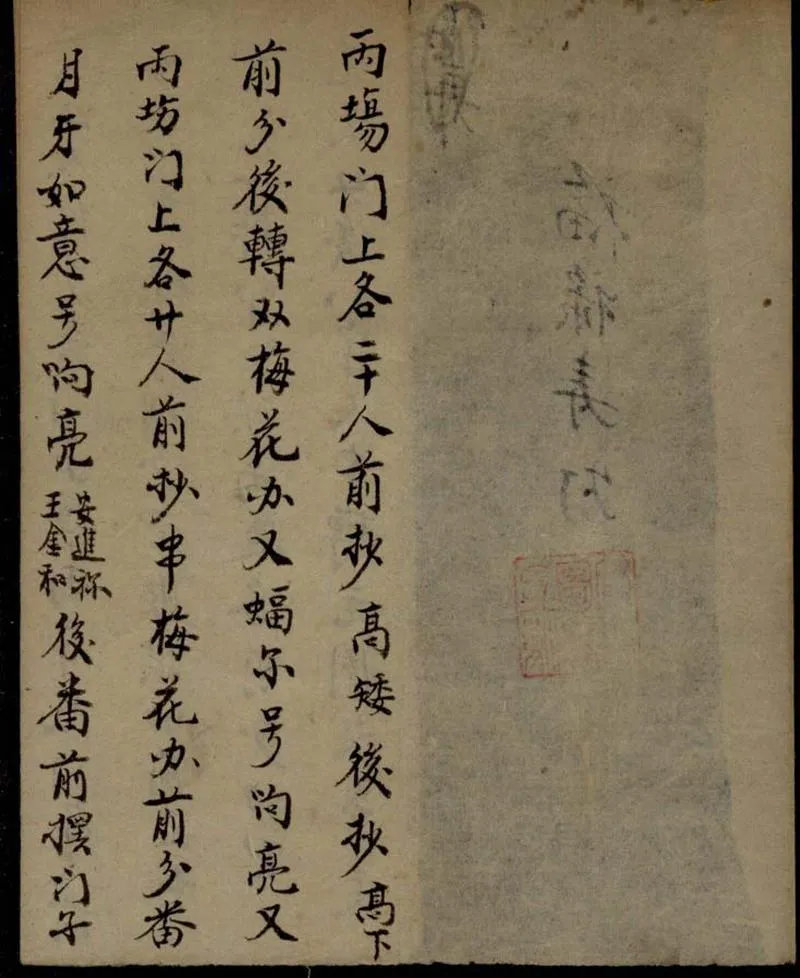 両場门上各二十人前抄高矮後抄高下
前分後轉双梅花办又蝠尔号响亮又
両坊门上各廿人前抄串梅花办前分番
月牙如意号响亮
安進祢
王金和
後番前摆门子